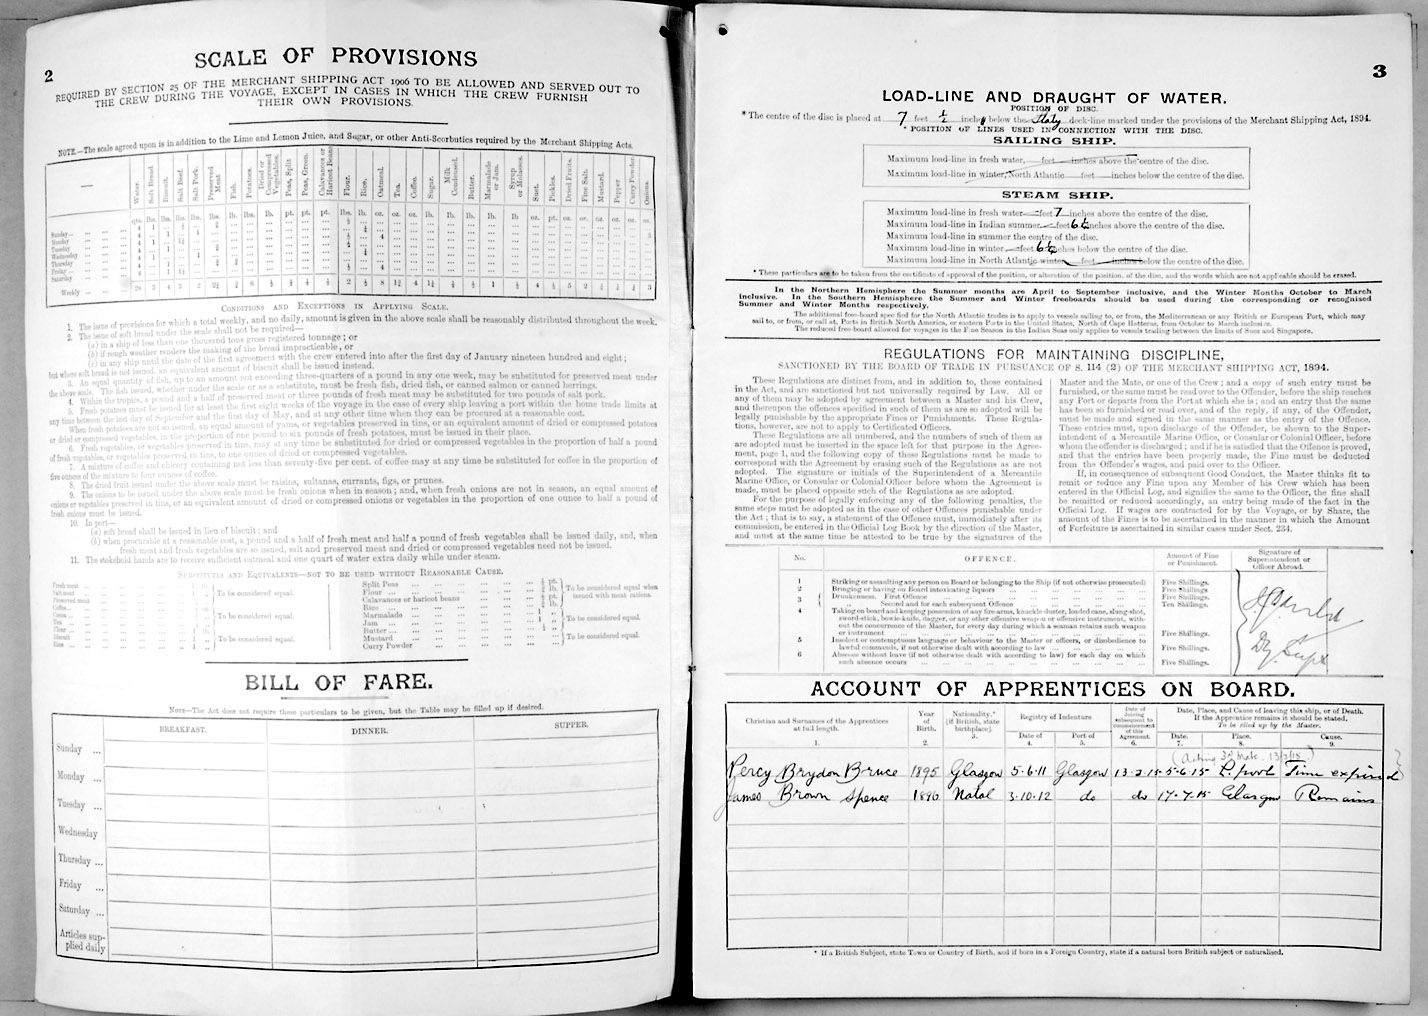 2
SCALE OF PROVISIONS
REQUIRED BY SECTION 25 OF THE MERCHANT SHIPPING ACT 1906 TO BE ALLOWED AND SERVED OUT TO
THE CREW DURING THE VOYAGE, EXCEPT IN CASES IN WHICH THE CREW FURNISH
THEIR OWN PROVISIONS.
NOTE.—The scale agreed upon is in addition to the Lime and Lemon Juice, and Sugar, or other Anti-Scorbutics required by the Merchant Shipping Acts.
Water. Soft Bread. Biscuit. Salt Beef. Salt Pork. Preserved Meat Fish. Potatoes. Dried or Compressed Vegetables. Peas, Split Peas, Green. Calavances or Haricot Beans Flour. Rice. Oatmeal. Tea. Coffee. Sugar. Milk Condensed. Butter. Marmalade or Jam. Syrup or Molasses. Suet. Pickles. Dried Fruits. Fine Salt. Mustard. Pepper Curry Powder. Onions.
Sunday
Monday
Tuesday
Wednesday
Thursday
Friday
Saturday
Weekly
CONDITIONS AND EXCEPTIONS IN APPLYING SCALE.
1. The issue of provisions for which a total weekly, and no daily, amount is given in the above scale shall be reasonably distributed throughout the week.
2. The issue of soft bread under the scale shall not be required—
(a) in a ship of less than one thousand tons gross registered tonnage; or
(b) if rough weather renders the making of the bread impracticable, or
(c) in any ship until the date of the first agreement with the crew entered into after the first day of January nineteen hundred and eight;
but where soft bread is not issued, an equivalent amount of biscuit shall be issued instead.
3. An equal quantity of fish, up to an amount not exceeding three-quarters of a pound in any one week, may be substituted for preserved meat under
the above scale. The fish issued, whether under the scale or as a substitute, must be fresh fish, dried fish, or canned salmon or canned herrings.
4. Within the tropics, a pound and a half of preserved meat or three pounds of fresh meat may be substituted for two pounds of salt pork.
5. Fresh potatoes must be issued for at least the first eight weeks of the voyage in the case of every ship leaving a port within the home trade limits at
any time between the last day of September and the first day of May, and at any other time when they can be procured at a reasonable cost.
When fresh potatoes are not so issued, an equal amount of yams, or vegetables preserved in tins, or an equivalent amount of dried or compressed potatoes
or dried or compressed vegetables, in the proportion of one pound to six pounds of fresh potatoes, must be issued in their place.
6. Fresh vegetables, or vegetables preserved in tins, may at any time be substituted for dried or compressed vegetables in the proportion of half a pound
of fresh vegetables, or vegetables preserved in tins, to one ounce of dried or compressed vegetables.
7. A mixture of coffee and chicory containing not less than seventy-five per cent. of coffee may at any time be substituted for coffee in the proportion of
five ounces of the mixture to four ounces of coffee.
8. The dried fruit issued under the above scale must be raisins, sultanas, currants, figs, or prunes.
9. The onions to be issued under the above scale must be fresh onions when in season; and, when fresh onions are not in season, an equal amount of
onions or vegetables preserved in tins, or an equivalent amount of dried or compressed onions or vegetables in the proportion of one ounce to half a pound of
fresh onions must be issued.
10. In port—
(a) soft bread shall be issued in lieu of biscuit; and
(b) when procurable at a reasonable cost, a pound and a half of fresh meat and half a pound of fresh vegetables shall be issued daily, and, when
fresh meat and fresh vegetables are so issued, salt and preserved meat and dried or compressed vegetables need not be issued.
11. The stokehold hands are to receive sufficient oatmeal and one quart of water extra daily while under steam.
SUBSTITUTES AND EQUIVALENTS—NOT TO BE USED WITHOUT REASONABLE CAUSE.
Fresh meat
Salt meat
Preserved meat
To be considered equal.
Coffee
Cocoa
Tea
To be considered equal.
Flour
Biscuit
Rice
To be considered equal.
Split Peas
Flour
Calavances or haricot beans
Rice
To be considered equal when issued with meat rations.
Marmalade
Jam
Butter
To be considered equal.
Mustard
Curry Powder
To be considered equal.
BILL OF FARE.
NOTE—The Act does not require these particulars to be given, but the Table may be filled up if desired.
BREAKFAST. DINNER. SUPPER.
Sunday
Monday
Tuesday
Wednesday
Thursday
Friday
Saturday
Articles supplied daily
3
LOAD-LINE AND DRAUGHT OF WATER.
POSITION OF DISC.
* The centre of the disc is placed at 7 feet ½ inches below the Italy deck-line marked under the provisions of the Merchant Shipping Act, 1894.
* POSITION OF LINES USED IN CONNECTION WITH THE DISC.
SAILING SHIP.
Maximum load-line in fresh water, feet inches above the centre of the disc.
Maximum load-line in winter, North Atlantic feet inches below the centre of the disc.
STEAM SHIP.
Maximum load-line in fresh water feet 7 inches above the centre of the disc.
Maximum load-line in Indian summer feet 6½ inches above the centre of the disc.
Maximum load-line in summer the centre of the disc.
Maximum load-line in winter feet 6½ inches below the centre of the disc.
Maximum load-line in North Atlantic winter feet inches below the centre of the disc.
* These particulars are to be taken from the certificate of approval of the position, or alteration of the position, of the disc, and the words which are not applicable should be erased.
In the Northern Hemisphere the Summer months are April to September inclusive, and the Winter Months October to March
inclusive. In the Southern Hemisphere the Summer and Winter freeboards should be used during the corresponding or recognised
Summer and Winter Months respectively.
The additional free-board specified for the North Atlantic trades is to apply to vessels sailing to, or from, the Mediterranean or any British or European Port, which may
sail to, or from, or call at, Ports in British North America, or eastern Ports in the United States, North of Cape Hatteras, from October to March inclusive.
The reduced free-board allowed for voyages in the Fine Season in the Indian Seas only applies to vessels trading between the limits of Suez and Singapore.
REGULATIONS FOR MAINTAINING DISCIPLINE,
SANCTIONED BY THE BOARD OF TRADE IN PURSUANCE OF S. 114 (2) OF THE MERCHANT SHIPPING ACT, 1894.
These Regulations are distinct from, and in addition to, those contained
in the Act, and are sanctioned but not universally required by Law. All or
any of them may be adopted by agreement between a Master and his Crew,
and thereupon the offences specified in such of them as are so adopted will be
legally punishable by the appropriate Fines or Punishments. These Regulations,
however, are not to apply to Certificated Officers.
These Regulations are all numbered, and the numbers of such of them as
are adopted must be inserted in the space left for that purpose in the Agreement,
page 1, and the following copy of these Regulations must be made to
correspond with the Agreement by erasing such of the Regulations as are not
adopted. The signature or initials of the Superintendent of a Mercantile
Marine Office, or Consular or Colonial Officer before whom the Agreement is
made, must be placed opposite such of the Regulations as are adopted.
For the purpose of legally enforcing any of the following penalties, the
same steps must be adopted as in the case of other Offences punishable under
the Act; that is to say, a statement of the Offence must, immediately after its
commission, be entered in the Official Log Book by the direction of the Master,
and must at the same time be attested to be true by the signatures of the
Master and the Mate, or one of the Crew; and a copy of such entry must be
furnished, or the same must be read over to the Offender, before the ship reaches
any Port or departs from the Port at which she is; and an entry that the same
has been so furnished or read over, and of the reply, if any, of the Offender,
must be made and signed in the same manner as the entry of the Offence.
These entries must, upon discharge of the Offender, be shown to the Superintendent
of a Mercantile Marine Office, or Consular or Colonial Officer, before
whom the offender is discharged; and if he is satisfied that the Offence is proved,
and that the entries have been properly made, the Fine must be deducted
from the Offender's wages, and paid over to the Officer.
If, in consequence of subsequent Good Conduct, the Master thinks fit to
remit or reduce any Fine upon any Member of his Crew which has been
entered in the Official Log, and signifies the same to the Officer, the fine shall
be remitted or reduced accordingly, an entry being made of the fact in the
Official Log. If wages are contracted for by the Voyage, or by Share, the
amount of the Fines is to be ascertained in the manner in which the Amount
of Forfeiture is ascertained in similar cases under Sect. 234.
No. OFFENCE. Amount of Fine or Punishment. Signature of Superintendent or Officer Abroad.
1 Striking or assaulting any person on Board or belonging to the Ship (if not otherwise prosecuted) Five Shillings.
2 Bringing or having on Board intoxicating liquors Five Shillings.
3 Drunkenness. First Offence Five Shillings.
" Second and for each subsequent Offence Ten Shillings.
4 Taking on board and keeping possession of any fire-arms, knuckle-duster, loaded cane, slung-shot,
sword-stick, bowie-knife, dagger, or any other offensive weapon or offensive instrument, without
the concurrence of the Master, for every day during which a seaman retains such weapon
or instrument Five Shillings.
5 Insolent or contemptuous language or behaviour to the Master or officers, or disobedience to
lawful commands, if not otherwise dealt with according to law Five Shillings.
6 Absence without leave (if not otherwise dealt with according to law) for each day on which
such absence occurs Five Shillings.
Dy. Supt
ACCOUNT OF APPRENTICES ON BOARD.
Christian and Surnames of the Apprentices at full length. Year of Birth. Nationality.* [if British, state birthplace]. Registry of Indenture Date of Joining subsequent to commencement of this Agreement. Date, Place, and Cause of leaving this ship, or of Death.
If the Apprentice remains it should be stated.
To be filled up by the Master.
Date of Port of Date. Place. Cause.
1. 2. 3. 4. 5. 6. 7. 8. 9.
(Acting 3rd Mate. 13/2/15)
Percy Brydon Bruce 1895 Glasgow 5.6.11 Glasgow 13.2.15 5.6.15 L'pool Time expired
James Brown Spence 1896 Natal 3.10.12 do do 17.7.15 Glasgow Remains
* If a British Subject, state Town or Country of Birth, and if born in a Foreign Country, state if a natural born British subject or naturalised.